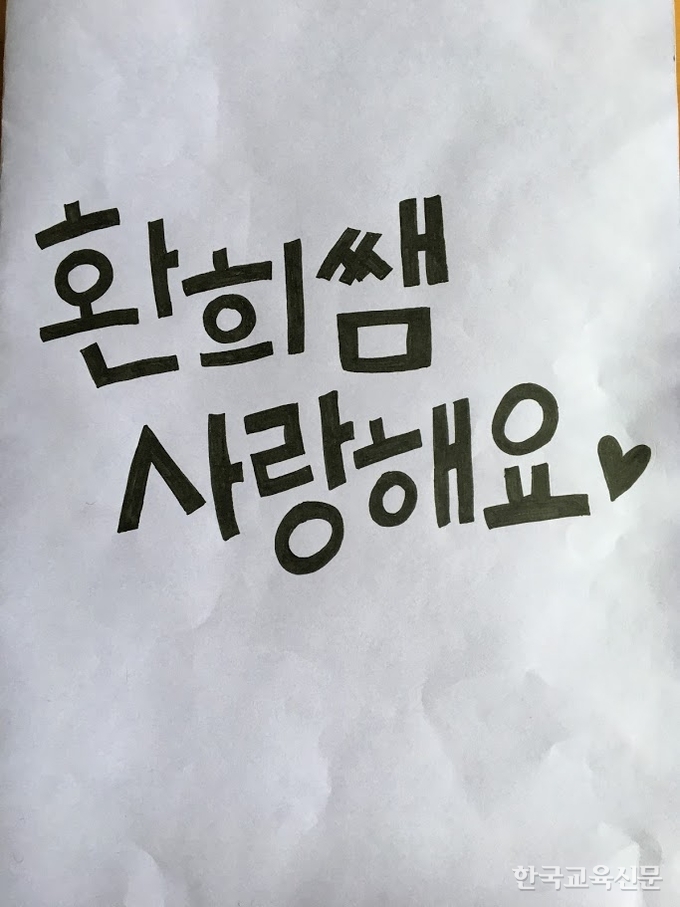 환희쌤
사랑해요♥
한국교육신문